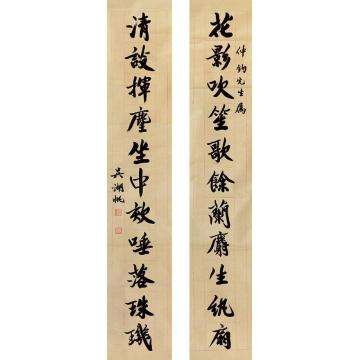 仲鈞先生屬
花影吹笙歌餘蘭麝生紈扇
清談揮麈坐中欬唾落珠璣
吳湖帆